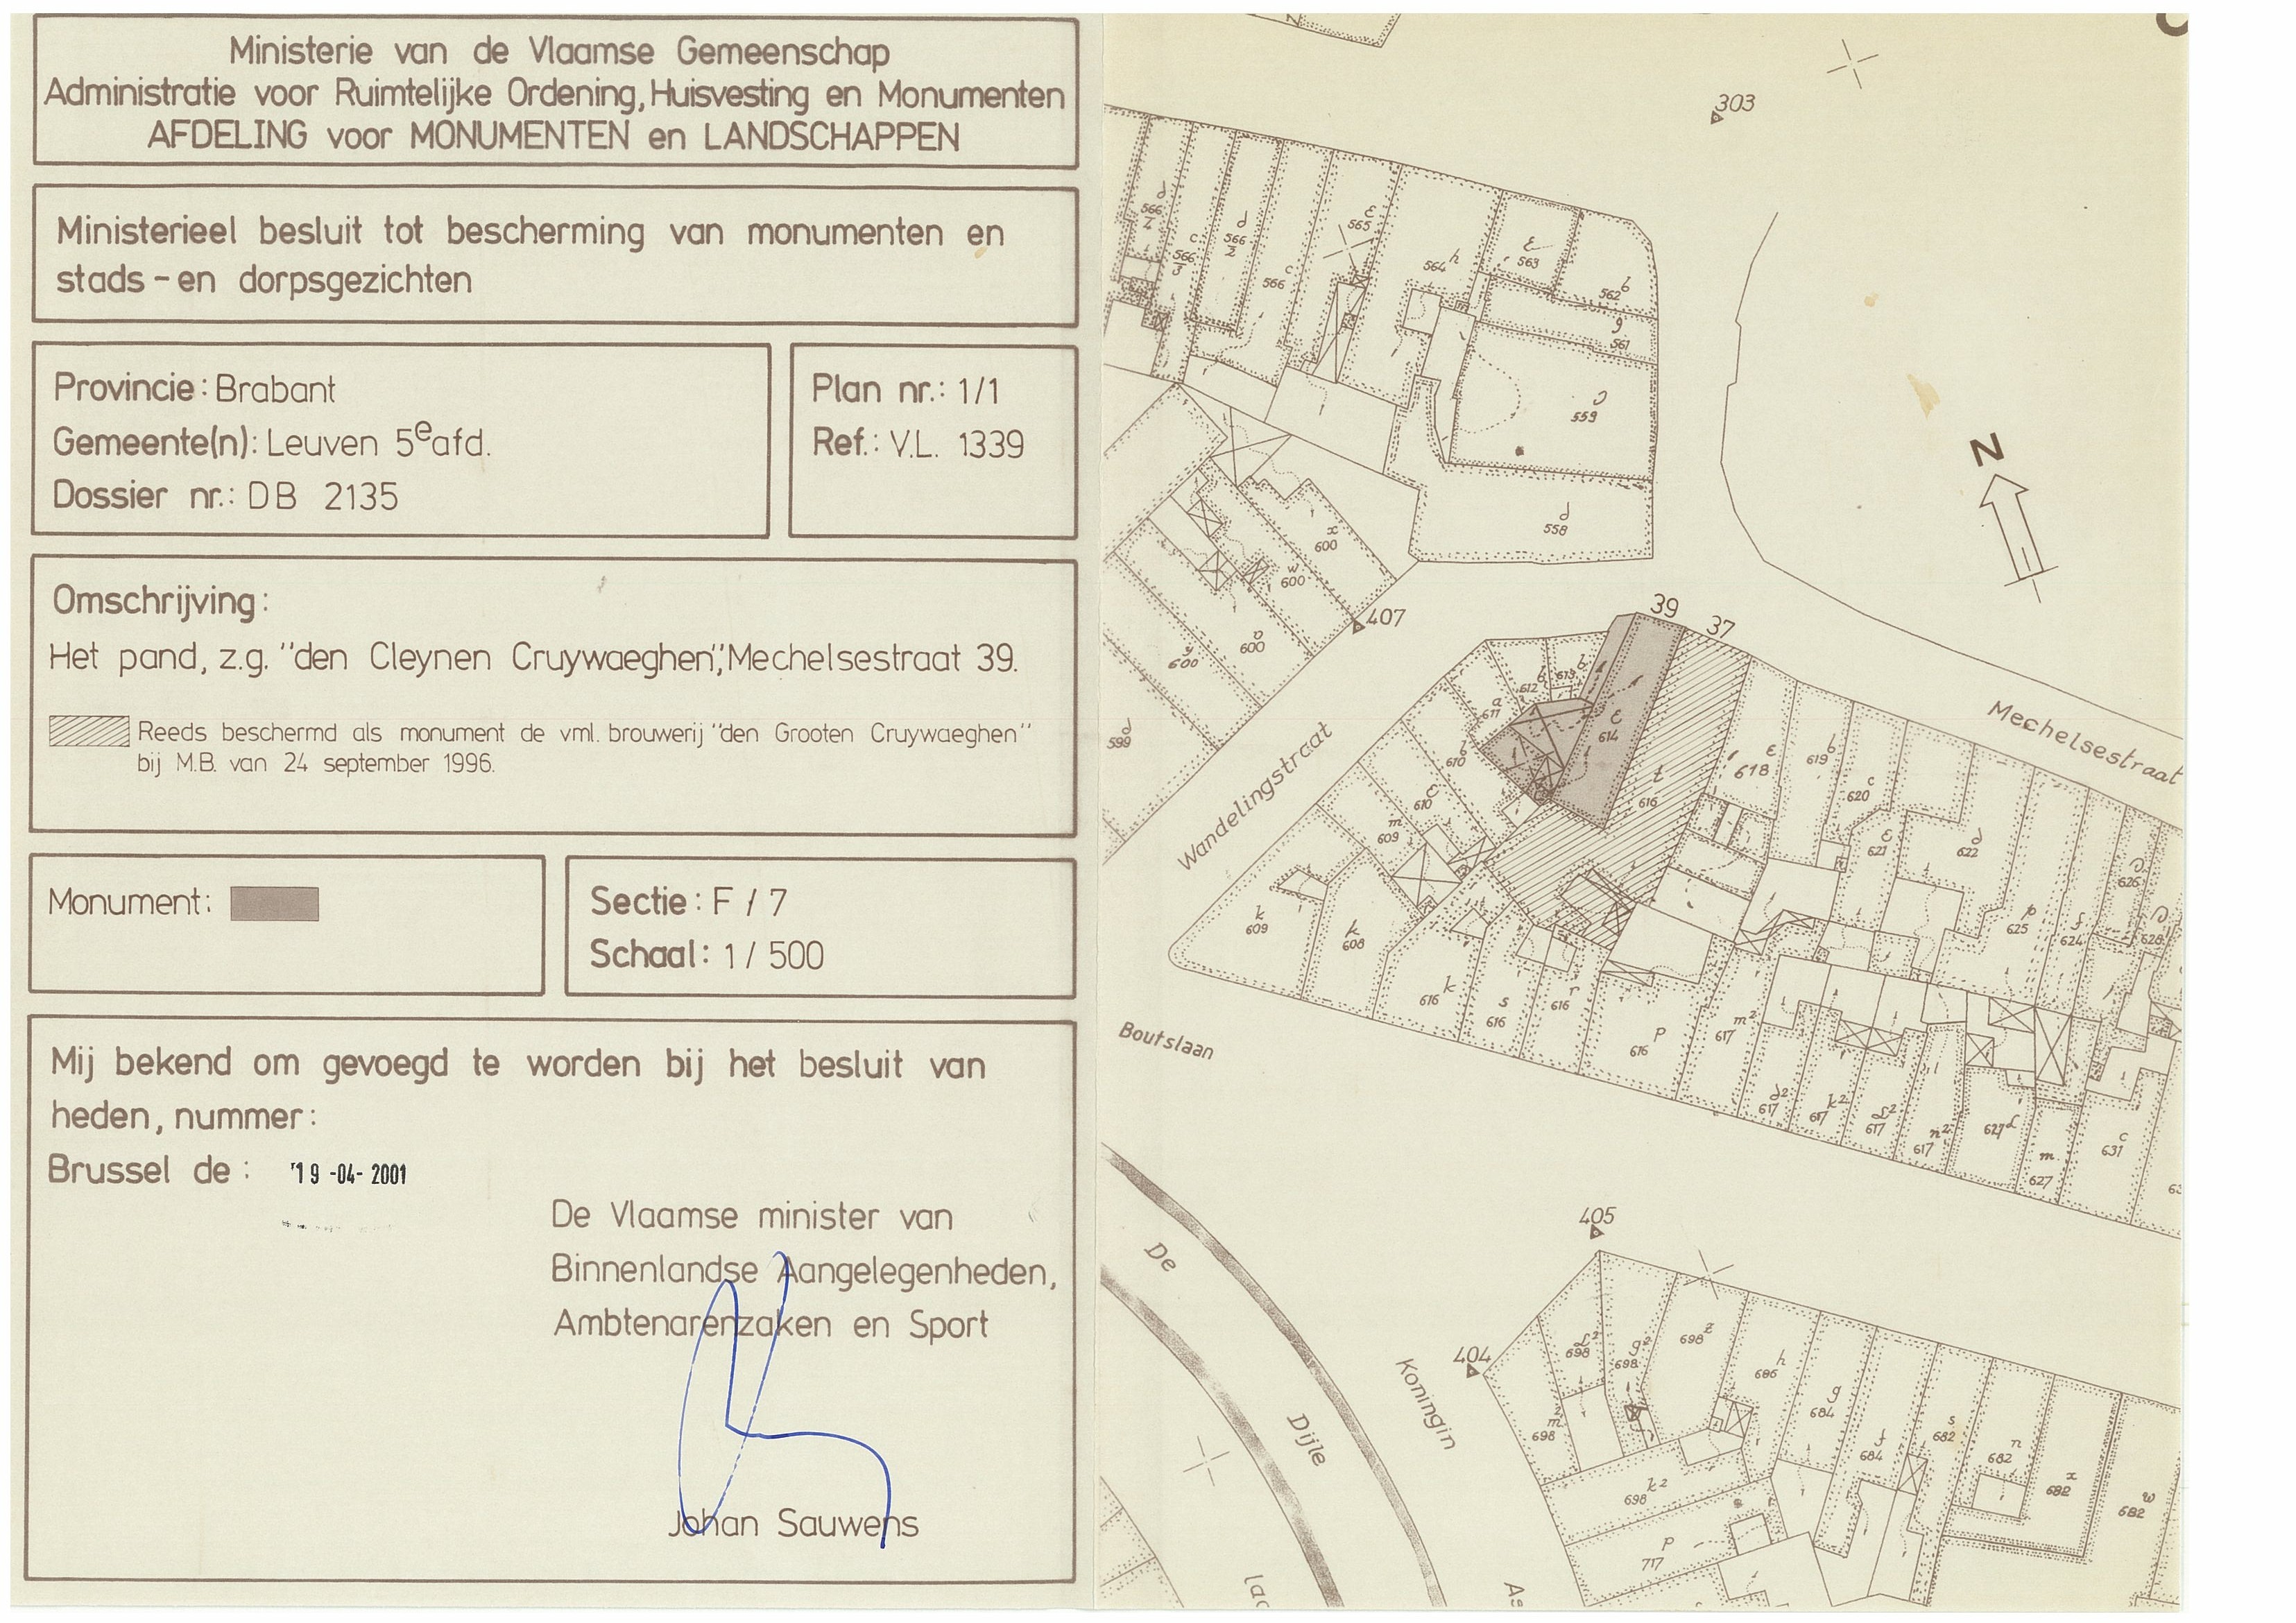 Ministerie van de Vlaamse Gemeenschap
Administratie voor Ruimtelijke Ordening, Huisvesting en Monumenten
AFDELING voor MONUMENTEN en LANDSCHAPPEN
Ministerieel besluit tot bescherming van monumenten en
stads-en dorpsgezichten
Provincie: Brabant
Gemeente(n): Leuven 5e afd.
Dossier nr.: DB 2135
Plan nr.: 1/1
Ref.: V.L. 1339
Omschrijving:
Het pand, z.g. "den Cleynen Cruywaeghen", Mechelsestraat 39.
Reeds beschermd als monument de vml. brouwerij "den Grooten Cruywaeghen"
bij M.B. van 24 september 1996.
Monument:
Sectie: F / 7
Schaal: 1 / 500
Mij bekend om gevoegd te worden bij het besluit van
heden, nummer:
Brussel de: 19 -04- 2001
De Vlaamse minister van
Binnenlandse Aangelegenheden,
Ambtenarenzaken en Sport
Johan Sauwens
303
d
566
2
c
566
3
d
566
2
c
566
565
h
564
563
b
562
g
561
559
d
558
N
x
600
w
600
600
600
d
599
407
39
37
Mechelsestraat
Wandelingstraat
b
613
b
612
a
611
b
610
610
m
609
k
609
k
608
614
t
616
618
b
619
c
620
621
d
622
p
625
f
624
626
628
k
616
s
616
r
616
p
616
m2
617
d2
617
k2
617
617
n2
617
627
m
627
c
631
Boutslaan
De
Dijle
Koningin
405
404
698
g2
698
z
698
m2
698
k2
698
h
686
g
684
f
684
s
682
n
682
x
682
w
682
p
717